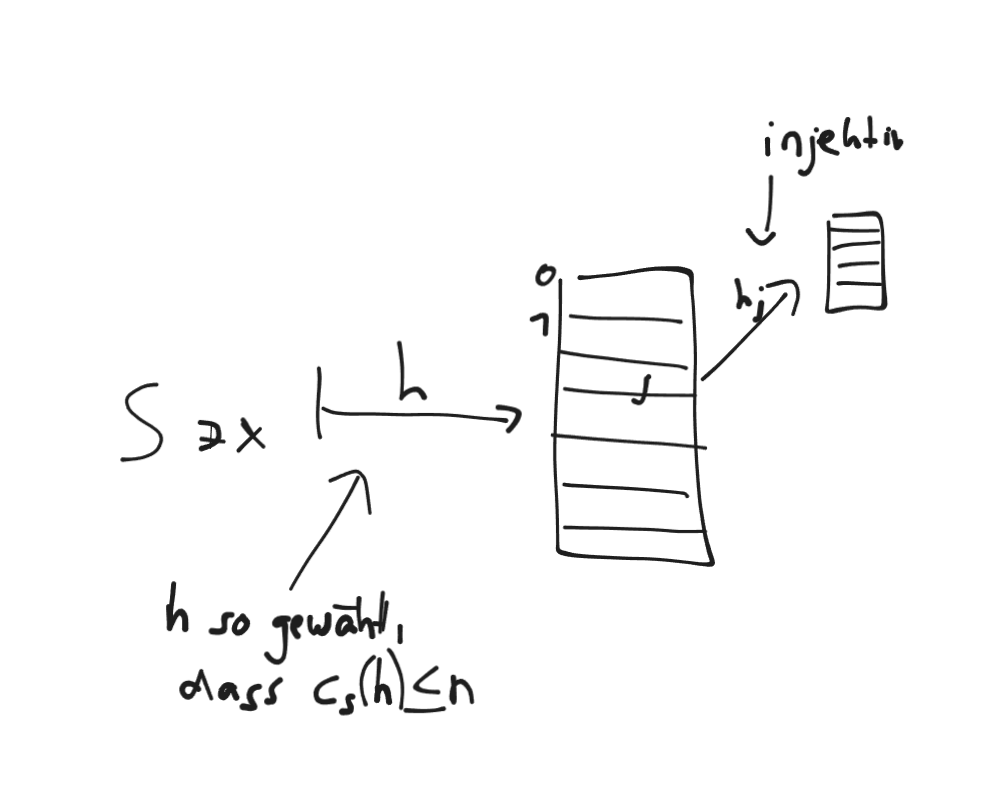 injektiv
0
1
h_j
h
j
S ∋ x
h so gewählt,
dass c_s(h) ≤ n